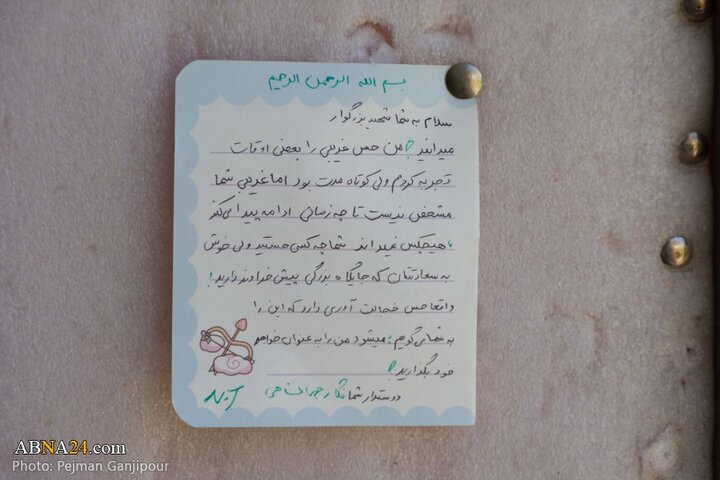 بسم الله الرحمن الرحیم
سلام به شما شهید بزرگوار
میدانید من حس غریبی را بعضی اوقات
تجربه کردم ولی کوتاه مدت بود اما غریبی شما
مشخص نیست تا چه زمانی ادامه پیدا می‌کند
هیچکس نمیداند شما چه کسی هستید ولی خوش
به سعادتتان که جایگاه بزرگی پیش خداوند دارید!
واقعا حس خجالت آوری دارد که این را
به شما می‌گویم: میشود من را به عنوان خواهر
خود بگذارید
دوستدار شما نگار
ABNA24.com
Photo: Pejman Ganjipour